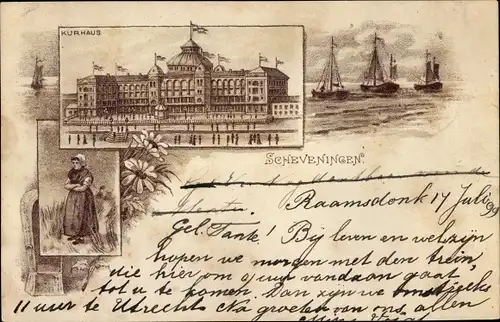 KURHAUS
SCHEVENINGEN.
Raamsdonk 17 Juli
Gel. Tante! Bij leven en welzijn
hopen we morgen met den trein
die hier om 9 uur vandaan gaat
tot u te komen. Dan zijn we
11 uur te Utrecht. Na groeten van ons allen